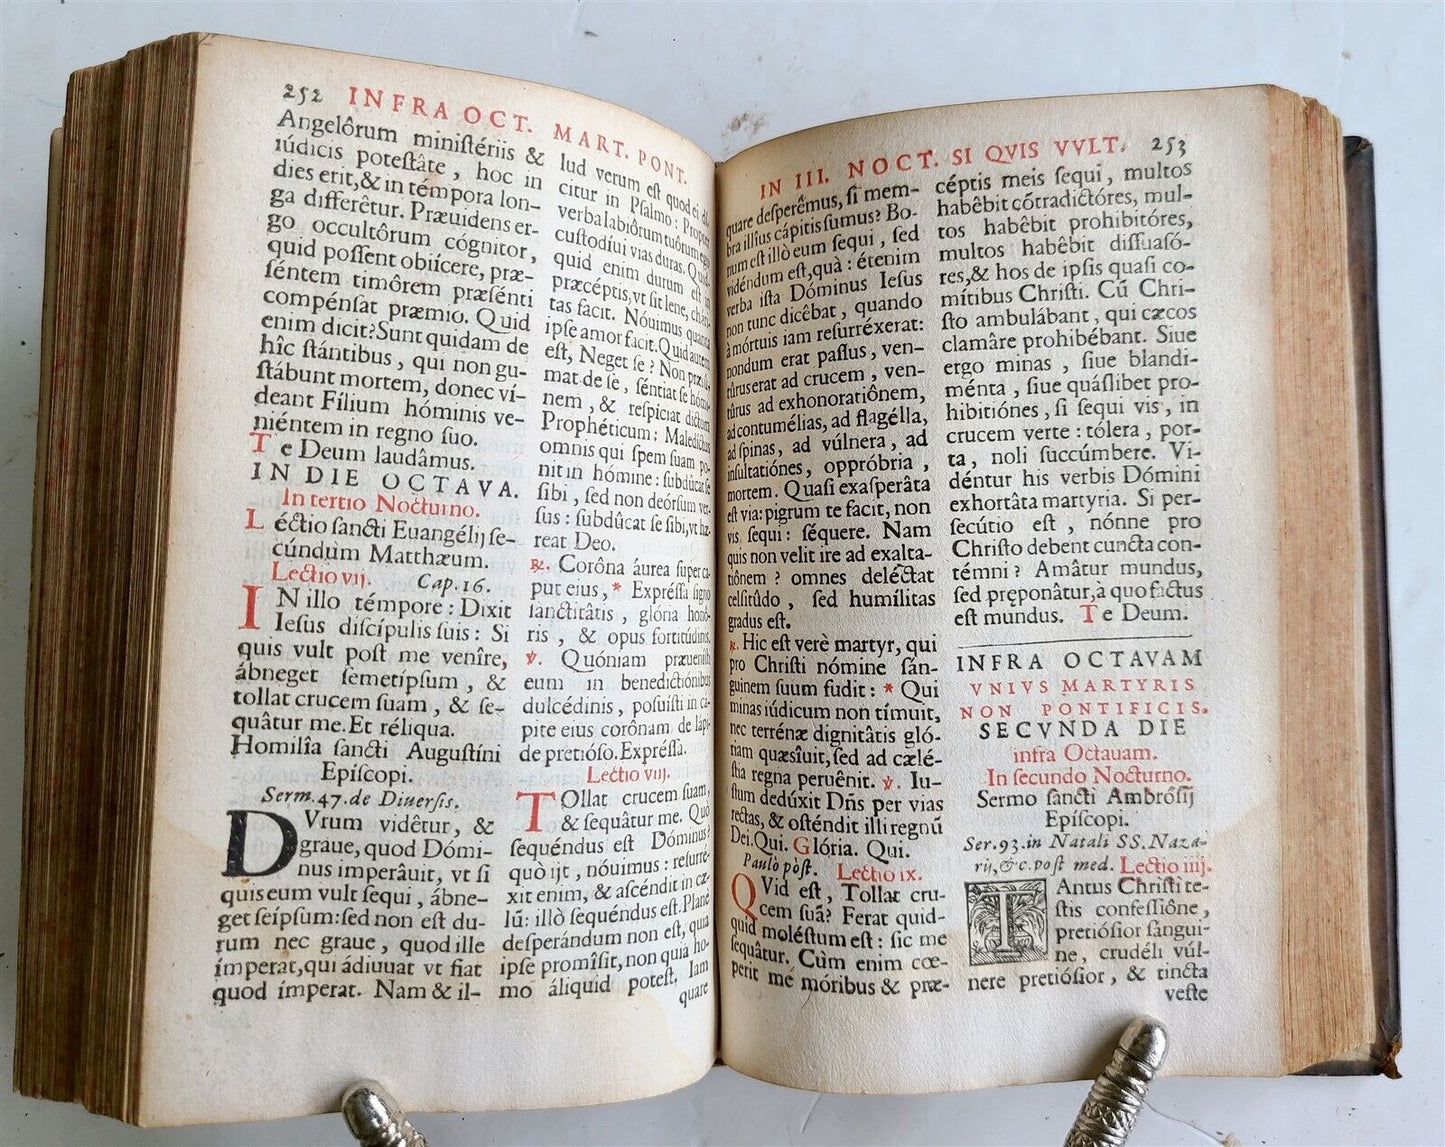 252 INFRA OCT. MART. PONT.
Angelôrum ministériis &
iúdicis potestâte, hoc in
dies erit, & in témpora lon-
ga differêtur. Præuidens er-
go occultôrum cógnitor,
quid possent obiícere, præ-
séntem timôrem præsénti
compénsat præmio. Quid
enim dicit? Sunt quidam de
hîc stántibus, qui non gu-
stábunt mortem, donec ví-
deant Fílium hóminis ve-
niéntem in regno suo.
Te Deum laudâmus.
IN DIE OCTAVA.
In tertio Nocturno.
Léctio sancti Euangélij se-
cúndum Matthæum.
Lectio vij. Cap. 16.
IN illo témpore: Dixit
Iesus discípulis suis: Si
quis vult post me venîre,
ábneget semetipsum, &
tollat crucem suam, & se-
quâtur me. Et réliqua.
Homilîa sancti Augustíni
Episcopi.
Serm. 47. de Diuersis.
DVrum vidêtur, &
graue, quod Dómi-
nus imperâuit, vt si
quis eum vult sequi, ábne-
get seipsum: sed non est du-
rum nec graue, quod ille
ímperat, qui ádiuuat vt fiat
quod ímperat. Nam & il-
lud verum est quod ei di-
citur in Psalmo: Propter
verba labiôrum tuôrum ego
custodíui vias duras. Quid-
quid enim durum est in
præcéptis, vt sit lene, chári-
tas facit. Nóuimus quanta
ipse amor facit. Quid autem
est, Neget se? Non præsú-
mat de se, séntiat se hómi-
nem, & respíciat dictum
Prophéticum: Maledíctus
omnis qui spem suam po-
nit in hómine: subdûcat se
sibi, sed non deórsum ver-
sus: subdûcat se sibi, vt hæ-
reat Deo.
℟. Corôna áurea super ca-
put eius, * Expréssa signo
sanctitâtis, glória honó-
ris, & opus fortitúdinis.
℣. Quóniam præuenísti
eum in benedictiónibus
dulcédinis, posuísti in cá-
pite eius corônam de lápi-
de pretióso. Expréssa.
Lectio viij.
TOllat crucem suam,
& sequâtur me. Quò
sequéndus est Dóminus?
quò ijt, nóuimus: resurré-
xit enim, & ascéndit in cæ-
lũ: illò sequéndus est. Plane
desperándum non est, quia
ipse promîsit, non quia ho-
mo áliquid potest. Iam
quare
IN III. NOCT. SI QVIS VVLT. 253
quare desperêmus, si mem-
bra illíus cápitis sumus? Bo-
num est illò eum sequi, sed
vidéndum est, quà: étenim
verba ista Dóminus Iesus
non tunc dicêbat, quando
à mórtuis iam resurréxerat:
nondum erat passus, ven-
túrus erat ad crucem, ven-
tûrus ad exhonoratiônem,
ad contumélias, ad flagélla,
ad spinas, ad vúlnera, ad
insultatiónes, oppróbria,
mortem. Quasi exasperâta
est via: pigrum te facit, non
vis sequi: séquere. Nam
quis non velit ire ad exalta-
tiônem? omnes deléctat
celsitûdo, sed humílitas
gradus est.
℟. Hic est verè martyr, qui
pro Christi nómine sán-
guinem suum fudit: * Qui
minas iúdicum non tímuit,
nec terrénæ dignitâtis gló-
riam quæsîuit, sed ad cælé-
stia regna peruênit. ℣. Iu-
stum dedúxit Dñs per vias
rectas, & osténdit illi regnũ
Dei. Qui. Glória. Qui.
Paulò pòst. Lectio ix.
QVid est, Tollat cru-
cem suã? Ferat quid-
quid moléstum est: sic me
sequâtur. Cùm enim cœ-
perit me móribus & præ-
céptis meis sequi, multos
habêbit cõtradictóres, mul-
tos habêbit prohibitóres,
multos habêbit dissuasó-
res, & hos de ipsis quasi co-
mítibus Christi. Cũ Chri-
sto ambulábant, qui cæcos
clamâre prohibébant. Siue
ergo minas, siue blandi-
ménta, siue quáslibet pro-
hibitiónes, si sequi vis, in
crucem verte: tólera, por-
ta, noli succúmbere. Vi-
déntur his verbis Dómini
exhortâta martyria. Si per-
secútio est, nónne pro
Christo debent cuncta con-
témni? Amâtur mundus,
sed pręponâtur, à quo factus
est mundus. Te Deum.
INFRA OCTAVAM
VNIVS MARTYRIS
NON PONTIFICIS.
SECVNDA DIE
infra Octauam.
In secundo Nocturno.
Sermo sancti Ambrósij
Epíscopi.
Ser. 93. in Natali SS. Naza-
rij, &c. post med. Lectio iiij.
TAntus Christi te-
stis confessiône,
pretiósior sángui-
ne, crudéli vúl-
nere pretiósior, & tincta
veste